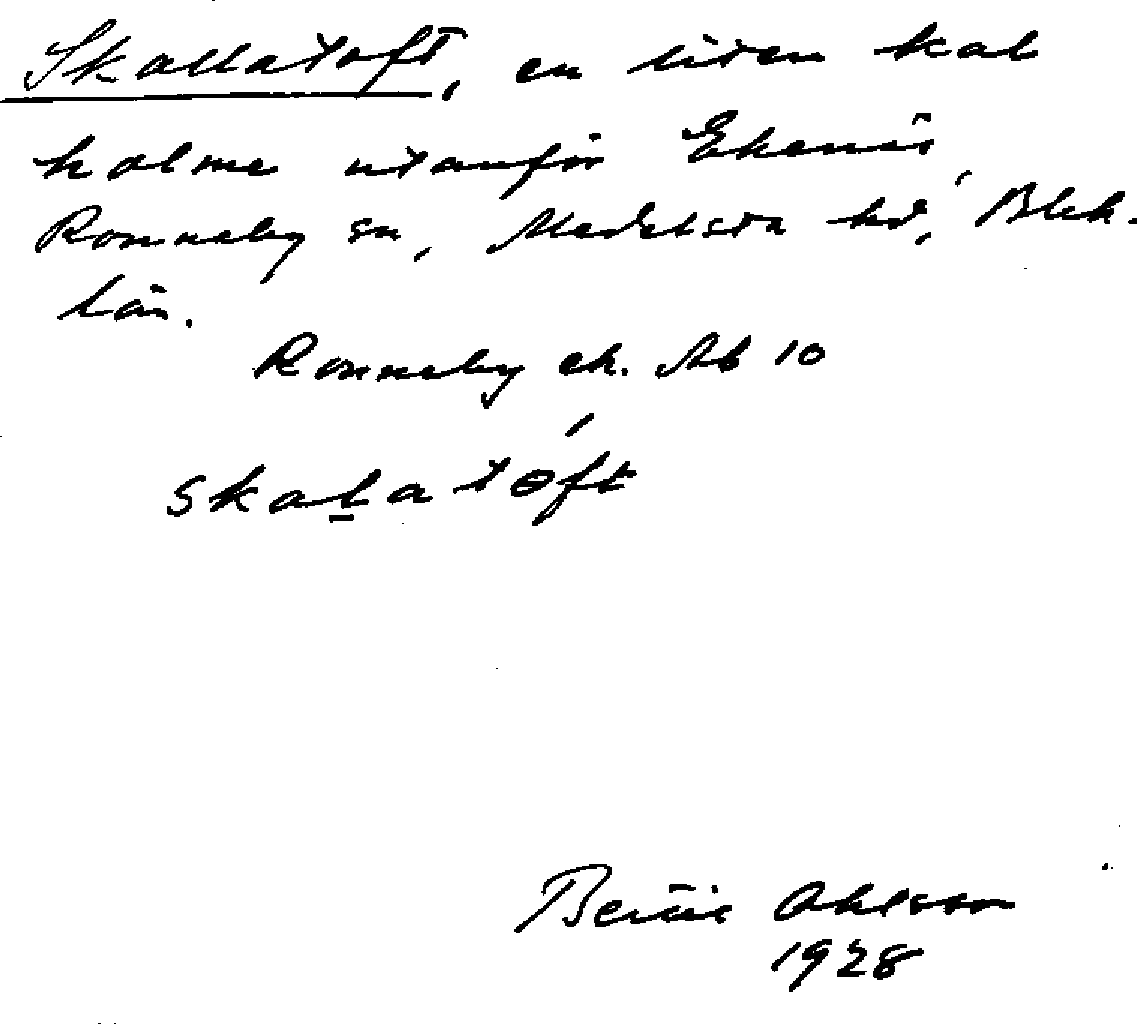 Skallatoft, en liten kal
holme utanför Ekenäs,
Ronneby sn, Medelsta hd, Blek.
län.
Ronneby ek. Ab 10
skalatɵft
Bertil Ohlsson
1928